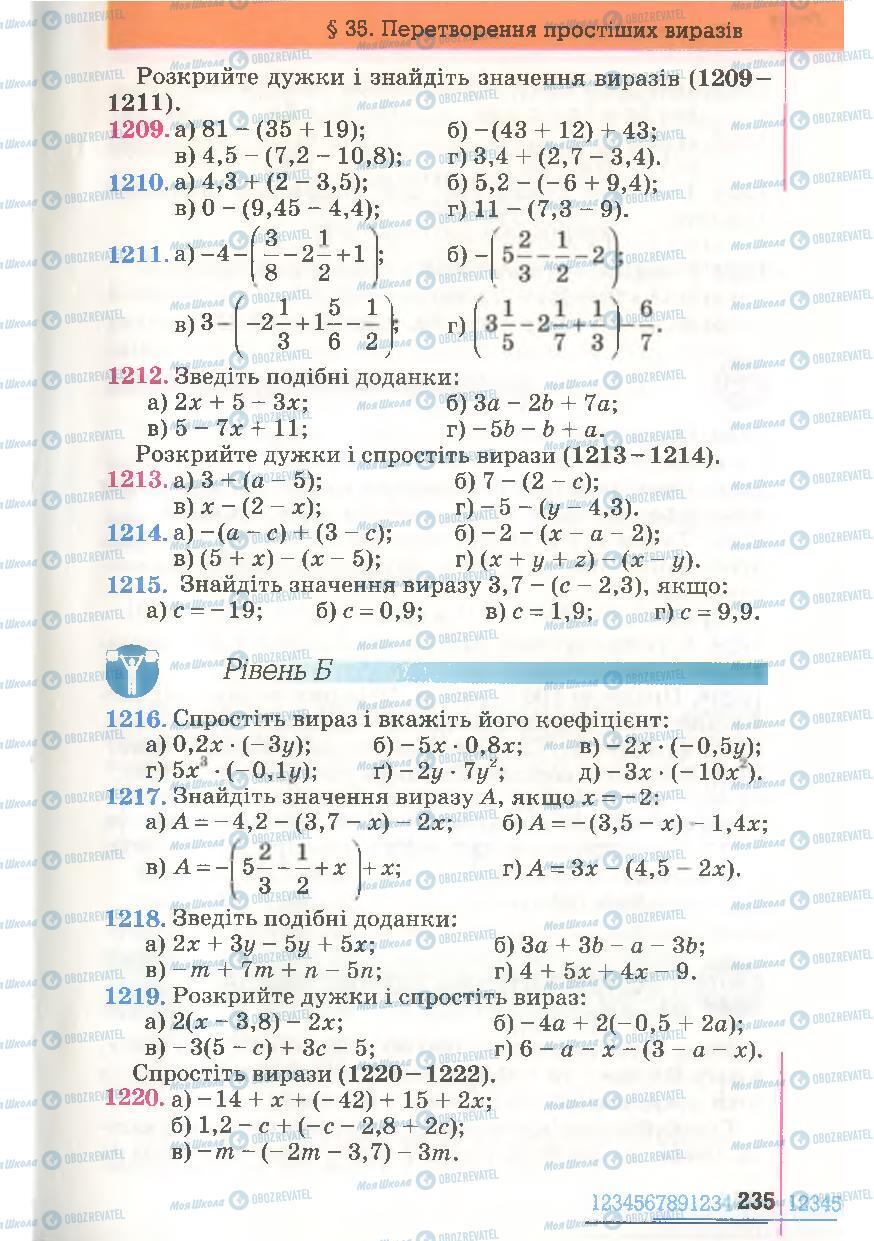 § 35. Перетворення простіших виразів
Розкрийте дужки і знайдіть значення виразів (1209–
1211).
1209. а) 81 − (35 + 19); б) −(43 + 12) + 43;
в) 4,5 − (7,2 − 10,8); г) 3,4 + (2,7 − 3,4).
1210. а) 4,3 + (2 − 3,5); б) 5,2 − (−6 + 9,4);
в) 0 − (9,45 − 4,4); г) 11 − (7,3 − 9).
1211. а) −4 − (3/8 − 2 1/2 + 1); б) −(5 2/3 − 1/2 − 2);
в) 3 − (−2 1/3 + 1 5/6 − 1/2); г) (3 1/5 − 2 1/7 + 1/3) − 6/7.
1212. Зведіть подібні доданки:
а) 2x + 5 − 3x; б) 3a − 2b + 7a;
в) 5 − 7x + 11; г) −5b − b + a.
Розкрийте дужки і спростіть вирази (1213–1214).
1213. а) 3 + (a − 5); б) 7 − (2 − c);
в) x − (2 − x); г) −5 − (y − 4,3).
1214. а) −(a − c) + (3 − c); б) −2 − (x − a − 2);
в) (5 + x) − (x − 5); г) (x + y + z) − (x − y).
1215. Знайдіть значення виразу 3,7 − (c − 2,3), якщо:
а) c = −19; б) c = 0,9; в) c = 1,9; г) c = 9,9.
Рівень Б
1216. Спростіть вираз і вкажіть його коефіцієнт:
а) 0,2x · (−3y); б) −5x · 0,8x; в) −2x · (−0,5y);
г) 5x³ · (−0,1y); ґ) −2y · 7y²; д) −3x · (−10x²).
1217. Знайдіть значення виразу A, якщо x = −2:
а) A = −4,2 − (3,7 − x) − 2x; б) A = −(3,5 − x) − 1,4x;
в) A = −(5 2/3 − 1/2 + x) + x; г) A = 3x − (4,5 − 2x).
1218. Зведіть подібні доданки:
а) 2x + 3y − 5y + 5x; б) 3a + 3b − a − 3b;
в) −m + 7m + n − 5n; г) 4 + 5x + 4x − 9.
1219. Розкрийте дужки і спростіть вираз:
а) 2(x − 3,8) − 2x; б) −4a + 2(−0,5 + 2a);
в) −3(5 − c) + 3c − 5; г) 6 − a − x − (3 − a − x).
Спростіть вирази (1220–1222).
1220. а) −14 + x + (−42) + 15 + 2x;
б) 1,2 − c + (−c − 2,8 + 2c);
в) −m − (−2m − 3,7) − 3m.
1234567891234 235 12345
МояШкола OBOZREVATEL